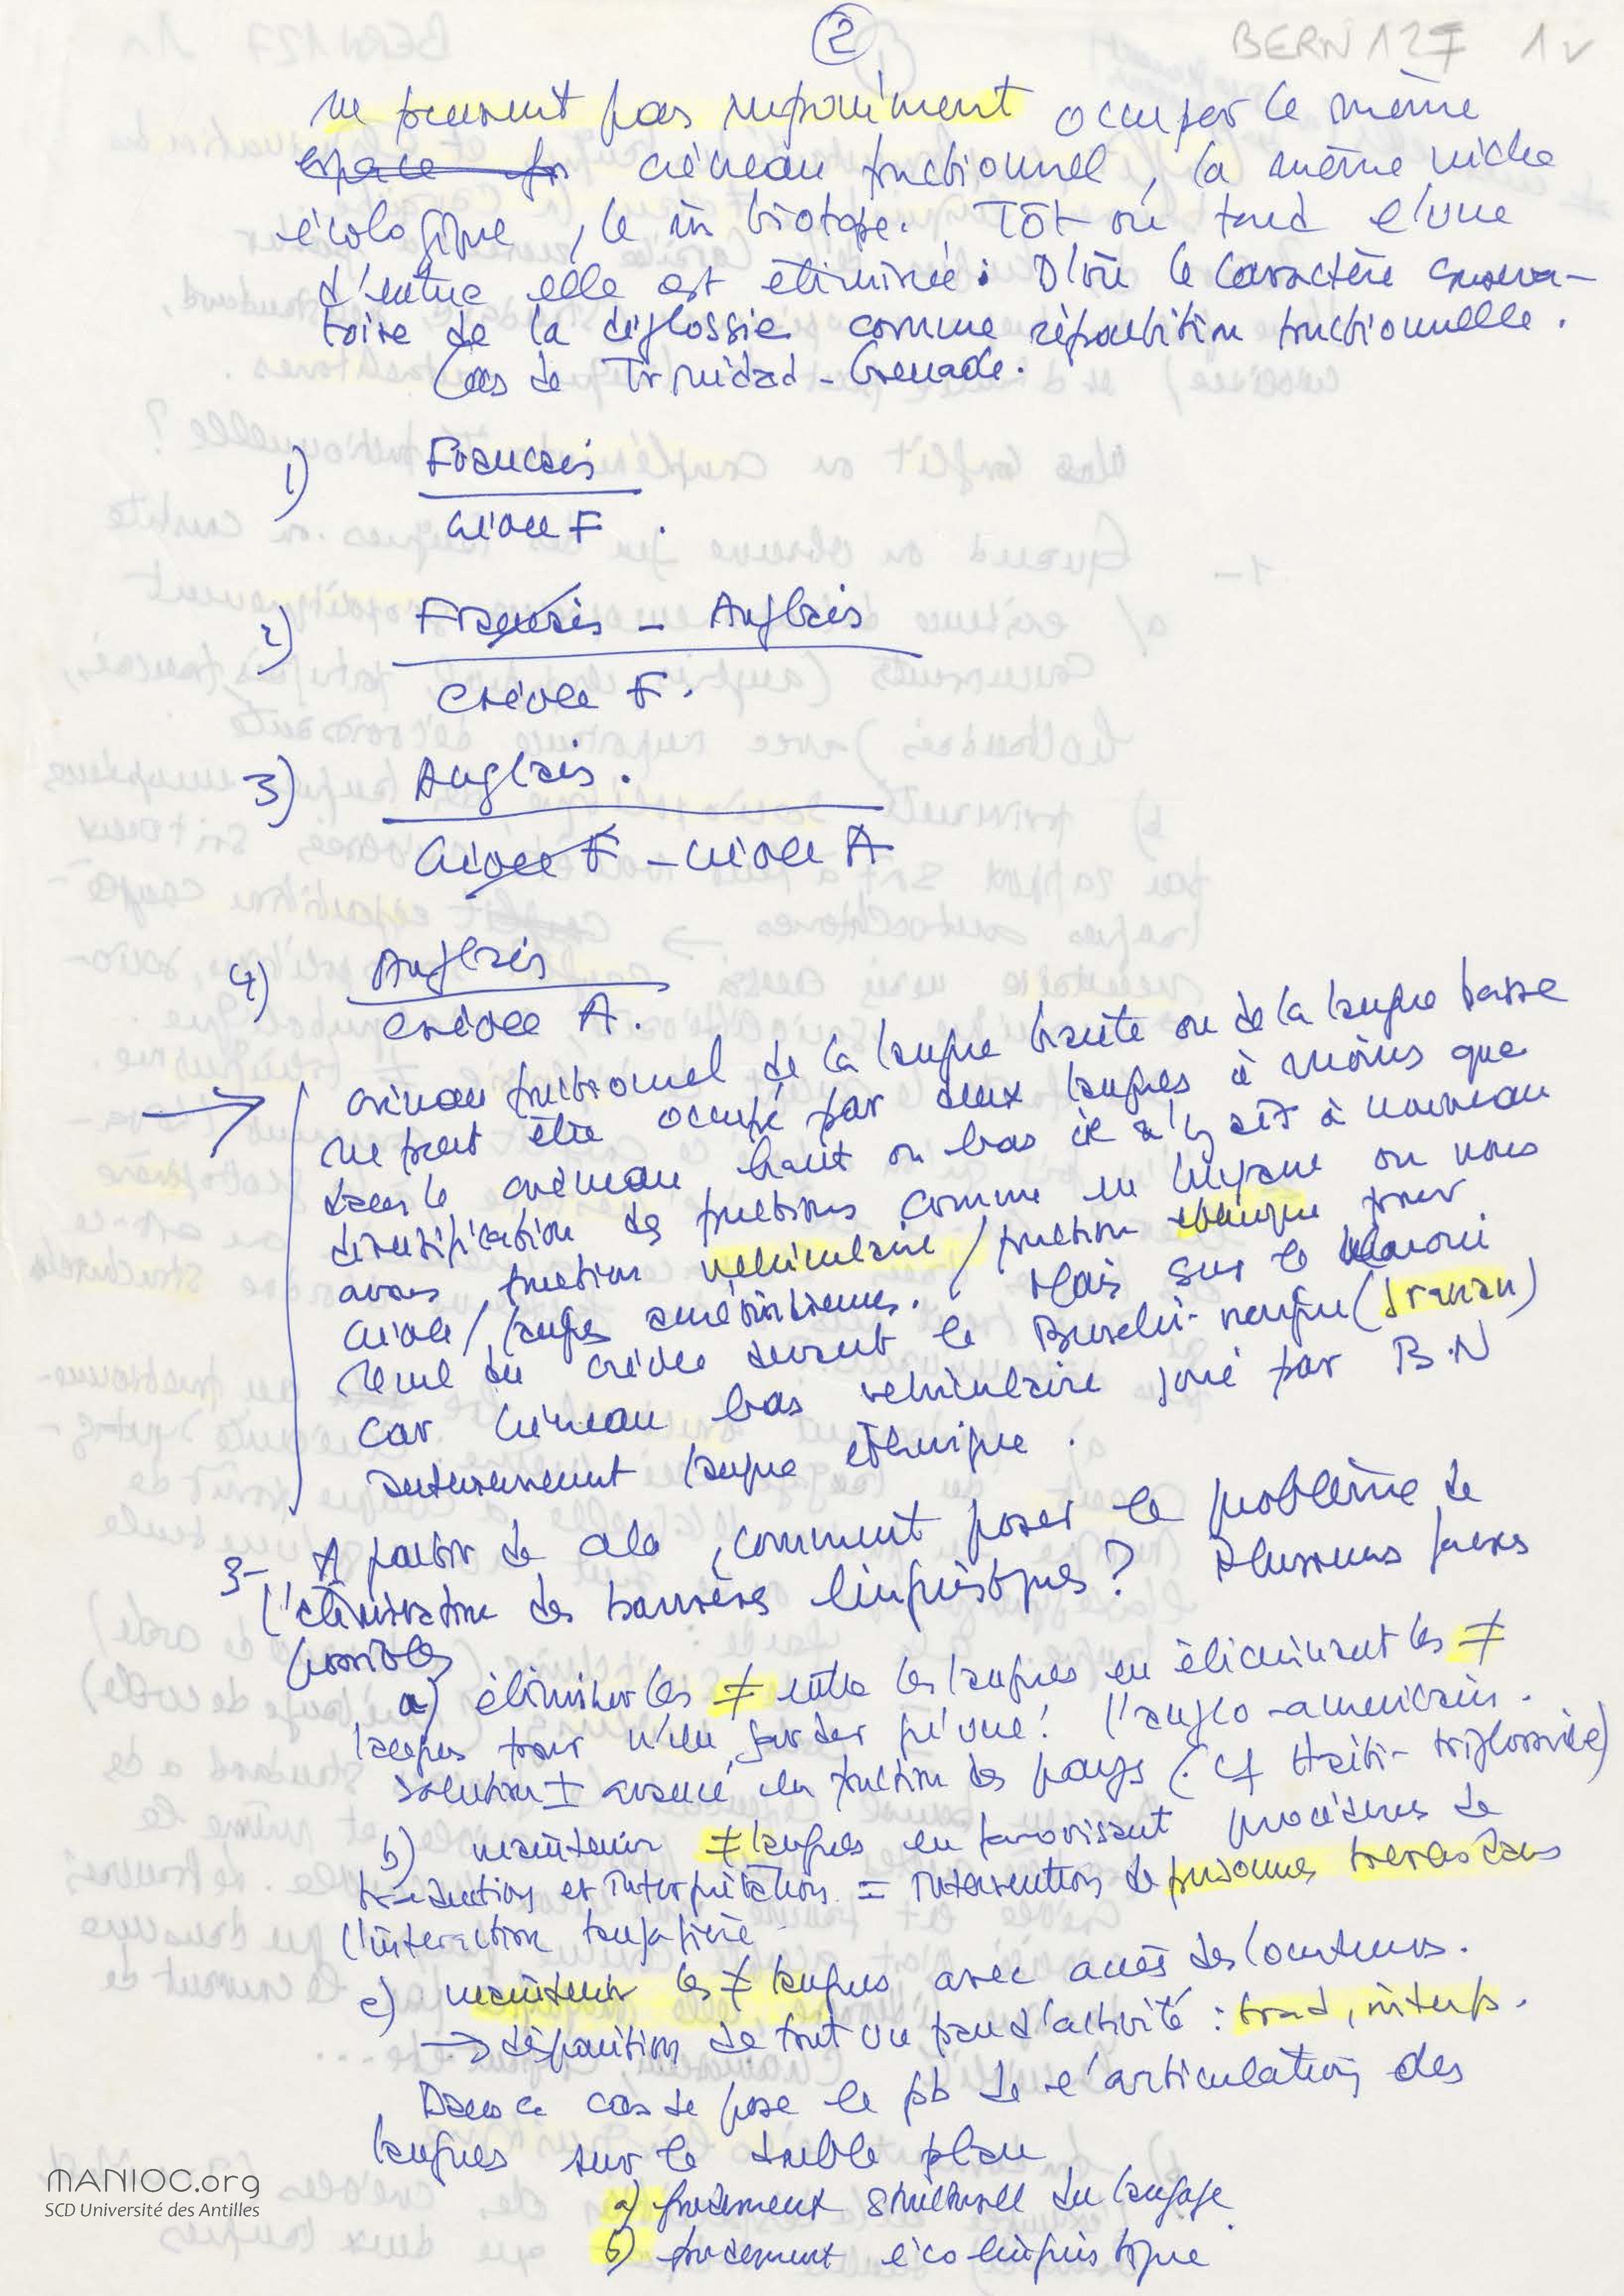 2
BERN 127 1v
ne peuvent pas impunément occuper le même
espace fo créneau fonctionnel, la même niche
écologique, le m̂ biotope. Tôt ou tard l'une
d'entre elle est éliminée. D'où le caractère conserva-
toire de la diglossie comme répartition fonctionnelle.
Cas de Trinidad - Grenade.
1) Français
créole F.
2) Français - Anglais
Créole F.
3) Anglais.
Créole F - créole A
4) Anglais
Créole A.
→ créneau fonctionnel de la langue haute ou de la langue basse
ne peut être occupé par deux langues à moins que
dans le créneau haut ou bas il n'y ait à nouveau
diversification des fonctions comme en Guyane où nous
avons fonction véhiculaire / fonction ethnique pour
créole / langues amérindiennes. Mais sur le Maroni
recul du créole devant le Bushi-nengue ( )
car créneau bas véhiculaire joué par B.N
antérieurement langue ethnique.
3- A partir de cela, comment poser le problème de
l'élimination des barrières linguistiques ? Plusieurs
possibles
a) éliminer les ≠ entre les langues en éliminant les ≠
langues pour n'en garder qu'une : l'anglo-américain.
solution ± avancé en fonction des pays (. cf Haïti - triglossie)
b) maintenir ≠ langues en favorisant procédures de
traduction et interprétation = intervention de personnes tierces dans
l'interaction langagière
c) maintenir les ≠ langues avec accès des locuteurs.
→ disparition de tout un pan d'activité : trad, interp.
Dans ce cas se pose le pb de l'articulation des
langues sur le double plan
a) fondement structurel du langage
b) fondement écolinguistique
MANIOC.org
SCD Université des Antilles